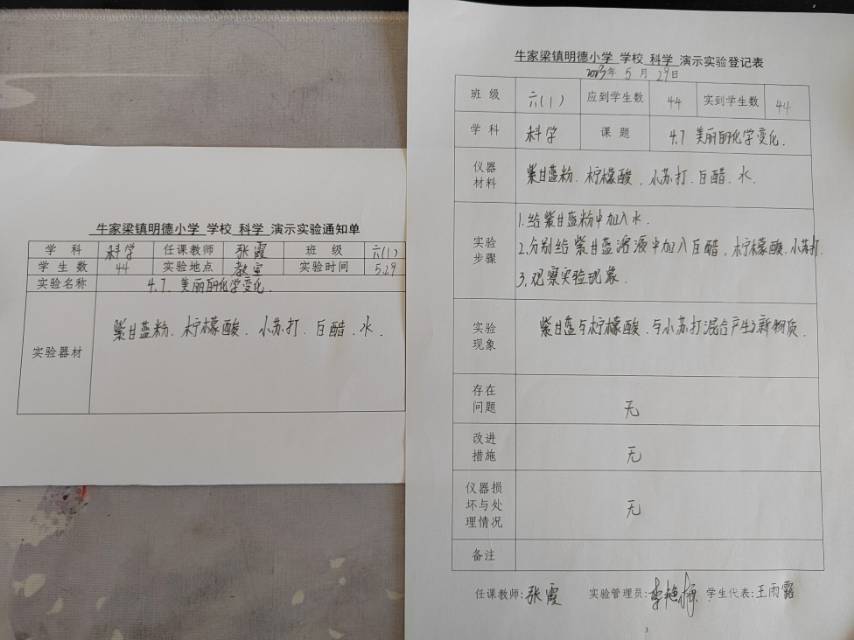 牛家梁镇明德小学 学校 科学 演示实验通知单
学科 科学 任课教师 张霞 班级 六(1)
学生数 44 实验地点 教室 实验时间 5.29
实验名称 4.7 美丽的化学变化.
实验器材 紫甘蓝粉、柠檬酸、小苏打、白醋、水.
牛家梁镇明德小学 学校 科学 演示实验登记表
2023年 5月 29日
班级 六(1) 应到学生数 44 实到学生数 44
学科 科学 课题 4.7 美丽的化学变化.
仪器材料 紫甘蓝粉、柠檬酸、小苏打、白醋、水.
实验步骤
1.给紫甘蓝粉中加入水.
2.分别给紫甘蓝溶液中加入白醋、柠檬酸、小苏打.
3.观察实验现象.
实验现象 紫甘蓝与柠檬酸、与小苏打混合产生了新物质.
存在问题 无
改进措施 无
仪器损坏与处理情况 无
备注
任课教师:张霞 实验管理员:李艳梅 学生代表:王雨露
3